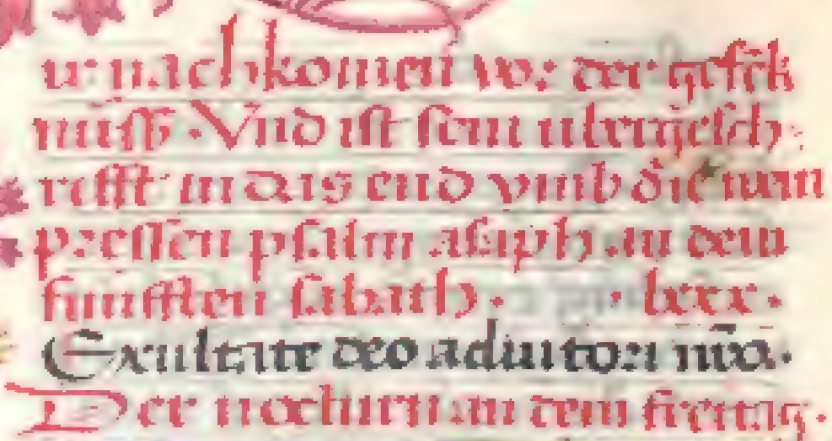 nachkomen vor der gefēk
nuſſ. Vnd iſt ſein ubergeſch
rifft in das end vmb die wein
preſſen pſalm aſaph. an dem
funfften ſabath. lxxx.
Exultate deo adiutori nr̄o.
Der nocturn an dem freitag.